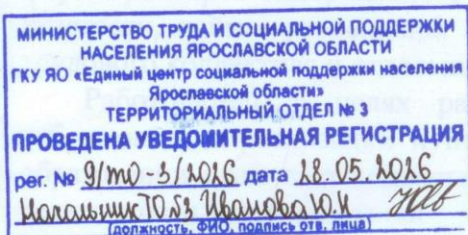 МИНИСТЕРСТВО ТРУДА И СОЦИАЛЬНОЙ ПОДДЕРЖКИ
НАСЕЛЕНИЯ ЯРОСЛАВСКОЙ ОБЛАСТИ
ГКУ ЯО «Единый центр социальной поддержки населения
Ярославской области»
ТЕРРИТОРИАЛЬНЫЙ ОТДЕЛ № 3
ПРОВЕДЕНА УВЕДОМИТЕЛЬНАЯ РЕГИСТРАЦИЯ
рег. № 9/ТО-3/2026 дата 28.05.2026
Начальник ТО №3 Иванова Ю.Н
(должность, ФИО, подпись отв. лица)